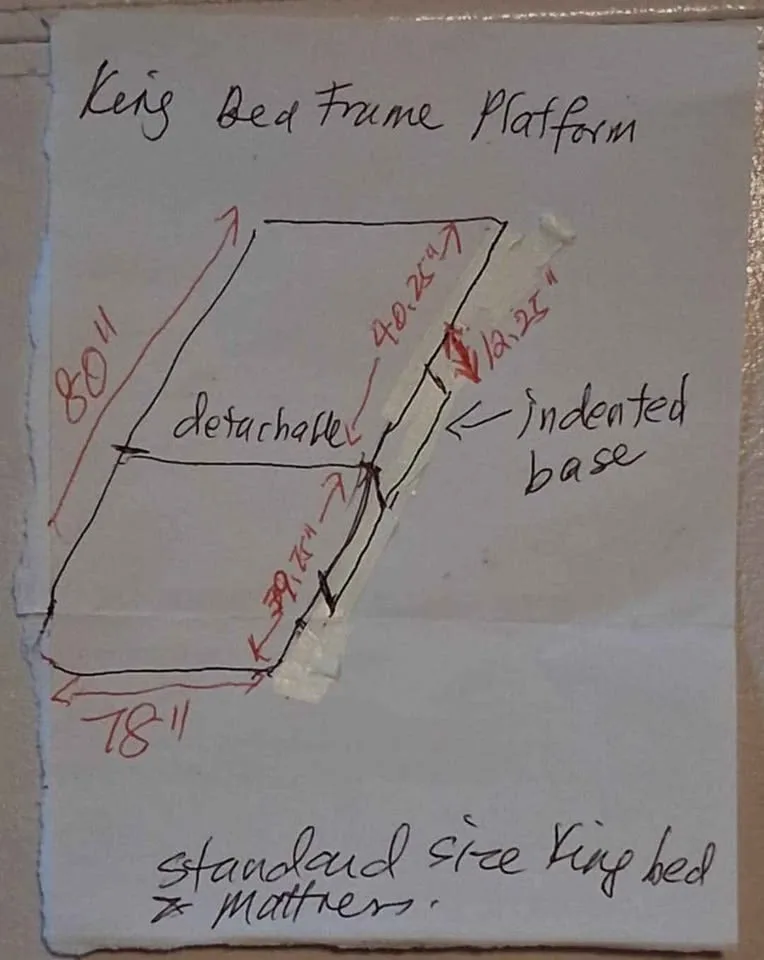 King Bed Frame Platform
80"
40.25"
12.25"
detachable
indented
base
39.25"
78"
standard size King bed
mattress.